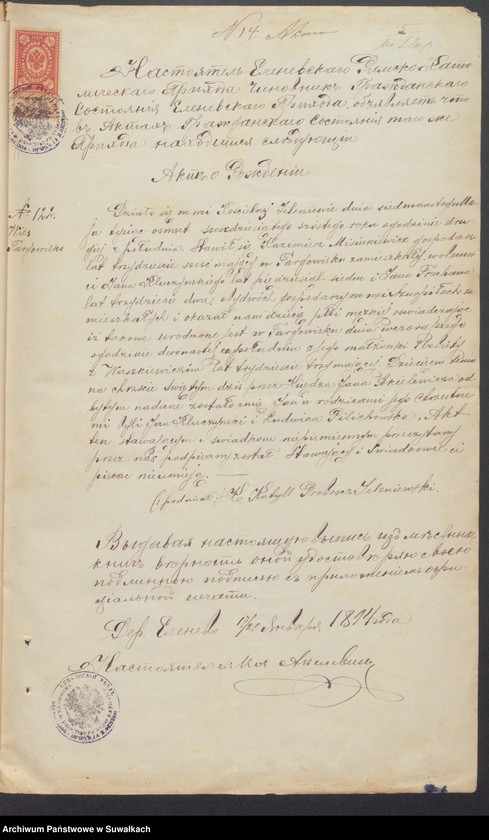 N 14
Настоятель Еленевскаго Римско-Като-
лическаго Прихода Чиновникъ Гражданскаго
Состоянія Еленевскаго Прихода, объявляетъ что
въ Актахъ Гражданскаго Состоянія того же
Прихода находится слѣдующій
Актъ о Рожденіи
№ 122.
Wieś
Targowisko
Działo się w mi Kościelnej Jeleniewie dnia siedmnastego Ma
ja tysiąc osmset szesdziesiątego szóstego roku o godzinie dru
giej z południa. Stawił się Kazimierz Misiukiewicz gospodarz
lat trzydzieście sześć mający w Targowisku zamieszkały, w obecnos
ci Jana Kluczyńskiego lat piędziesiąt siedm i Jana
lat trzydzieście dwa, obydwóch gospodarzy w wsi za
mieszkałych i okazał nam dziecię płci męzkiej oświadczając
iż takowe urodzone jest w Targowisku dnia wczorajszego
o godzinie dwónastéj z południa z jego małżonki Elżbiety
z Waszkiewiczów lat trzydzieście trzy mającej. Dziecięciu temu
na chrzcie świętym dziś przez Księdza Jana od
bytym nadane zostało imię Jana a rodzicami jego chrzestne
mi byli Jan Kluczyński i Ludwika Pilichowska. Akt
ten stawającym i świadkom niepiśmiennym przeczytany
przez nas podpisany został Stawający i Świadkowie ci
pisać nieumieją.
(podpisał) X Proboszcz Jeleniewski.
Выдавая настоящую выпись изъ мѣстныхъ
книгъ вѣрность оной удостовѣряю своею
подлинною подписью съ приложеніемъ оффи-
ціальной печати.
Дер. Еленево Января 1894 года
Настоятель: Кс.
Archiwum Państwowe w Suwałkach